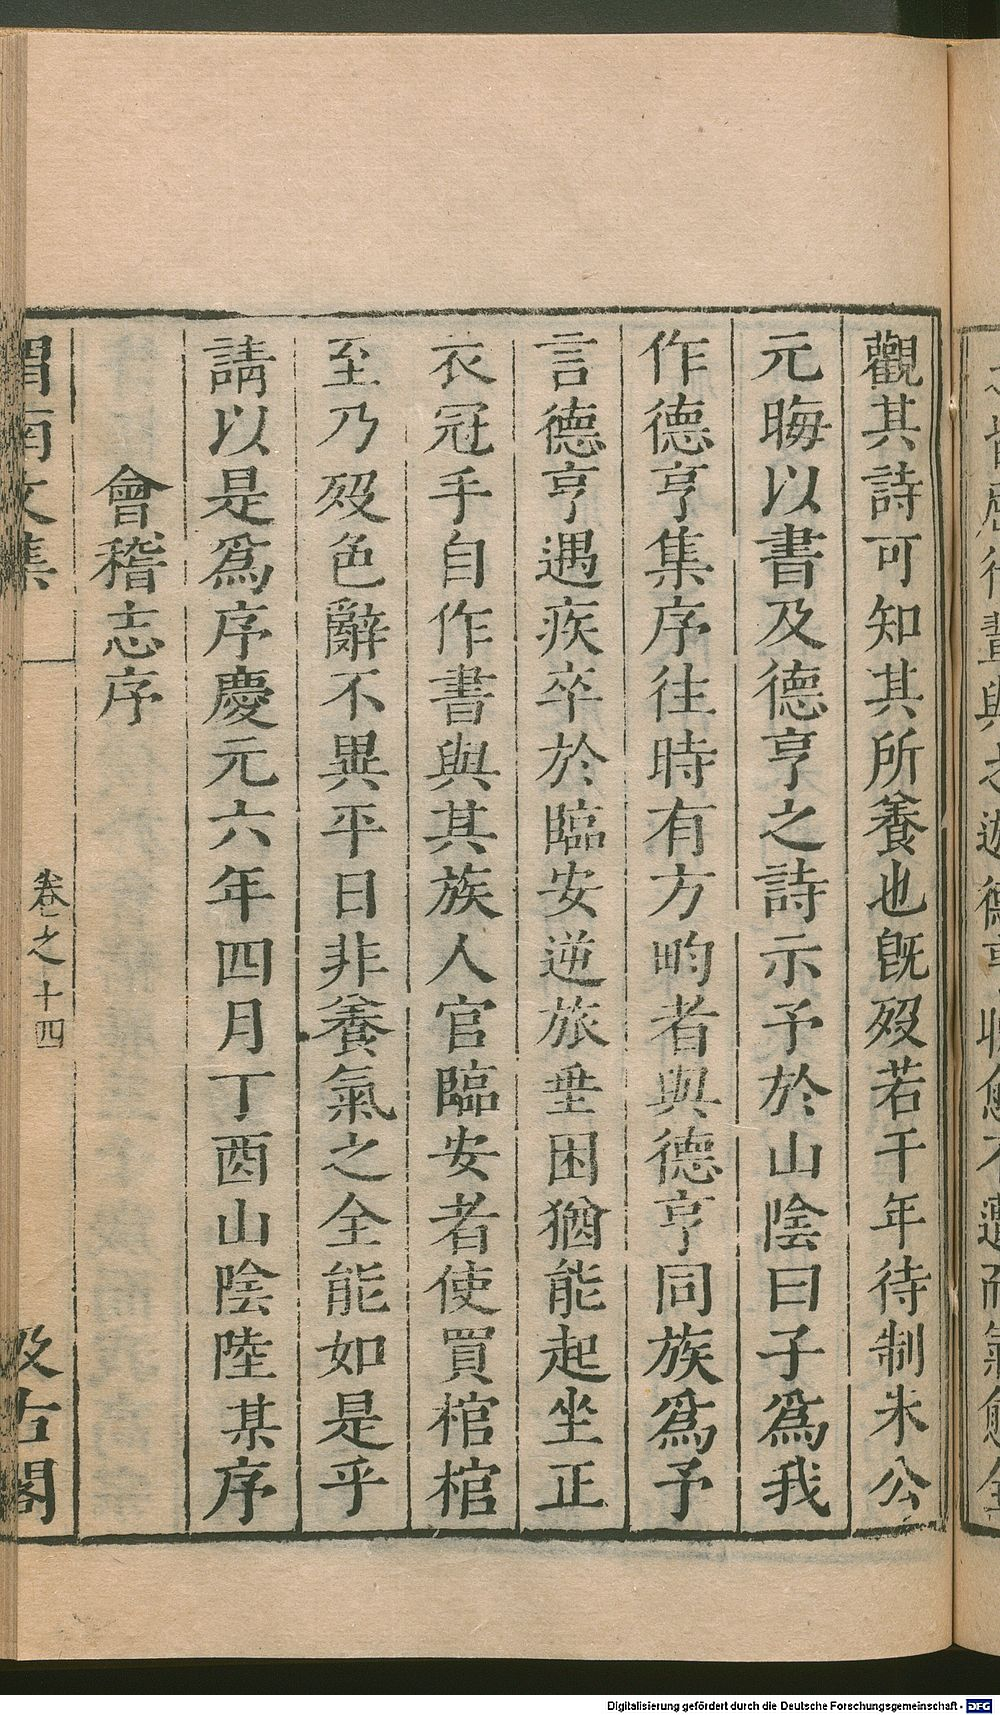 觀其詩可知其所養也旣歿若干年待制朱公
元晦以書及德亨之詩示予於山陰曰子爲我
作德亨集序往時有方畇者與德亨同族爲予
言德亨遇疾卒於臨安逆旅垂困猶能起坐正
衣冠手自作書與其族人官臨安者使買棺棺
至乃歿色辭不異平日非養氣之全能如是乎
請以是爲序慶元六年四月丁酉山陰陸某序
會稽志序
渭南文集
卷之十四
汲古閣
Digitalisierung gefördert durch die Deutsche Forschungsgemeinschaft - DFG